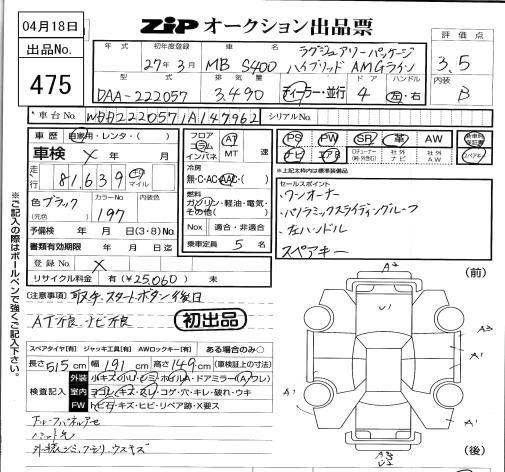 04月18日
出品No.
475
ZIP オークション出品票
評価点
3.5
内装
B
年式
初年度登録
27年3月
車名
MB S400
ラグジュアリーパッケージ
ハイブリッド AMGライン
型式
DAA-222057
排気量
3,490
ディーラー・並行
ドア
4
ハンドル
左・右
車台No.
WDD2220571A147962
シリアルNo.
車歴 自家用・レンタ・( )
車検 X 年 月
走行 81,639 km マイル
色 ブラック
(元色)
カラーNo
197
内装色
予備検 年 月 日(3・8)No.
書類有効期限 年 月 日
登録No. X
リサイクル料金 有(¥25,060) 未
フロア
コラム
インパネ
AT
MT 速
冷房
無・C・AC・AAC・( )
燃料
ガソリン・軽油・電気・
その他( )
Nox 適合・非適合
乗車定員 5 名
PS PW SR 革 AW
ナビ エアB
社外ナビ
社外AW
スペアキー
※上記太枠内は標準装備品
セールスポイント
・ワンオーナー
・パノラミックスライディングルーフ
・左ハンドル
スペアキー
※ご記入の際はボールペンで強くご記入下さい。
(注意事項) 取説、スタートボタン後日
AT不良 ナビ不良
初出品
スペアタイヤ[有] ジャッキ工具[有] AWロックキー[有] ある場合のみ○
長さ 515 cm 幅 191 cm 高さ 149 cm (車検証上の寸法)
検査記入
外装 小キズ・小U・シミ・ホイルA・ドアミラー(A/ワレ)
室内 ヨゴレ・キズ・スレ・コゲ・穴・キレ・破れ・ウキ
FW トビ石・キズ・ヒビ・リペア跡・X要ス
(前)
A2
U1
A3
A1
A1
A1
A1
A3
U2
(後)